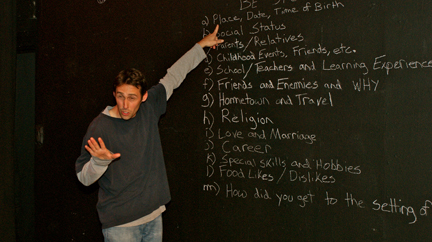 a) Place, Date, Time of Birth
b) Social Status
Parents/Relatives
d) Childhood Events, Friends, etc.
e) School/Teachers and Learning Experience
f) Friends and Enemies and WHY
g) Hometown and Travel
h) Religion
i) Love and Marriage
j) Career
k) Special skills and Hobbies
l) Food Likes/Dislikes
m) How did you get to the setting of